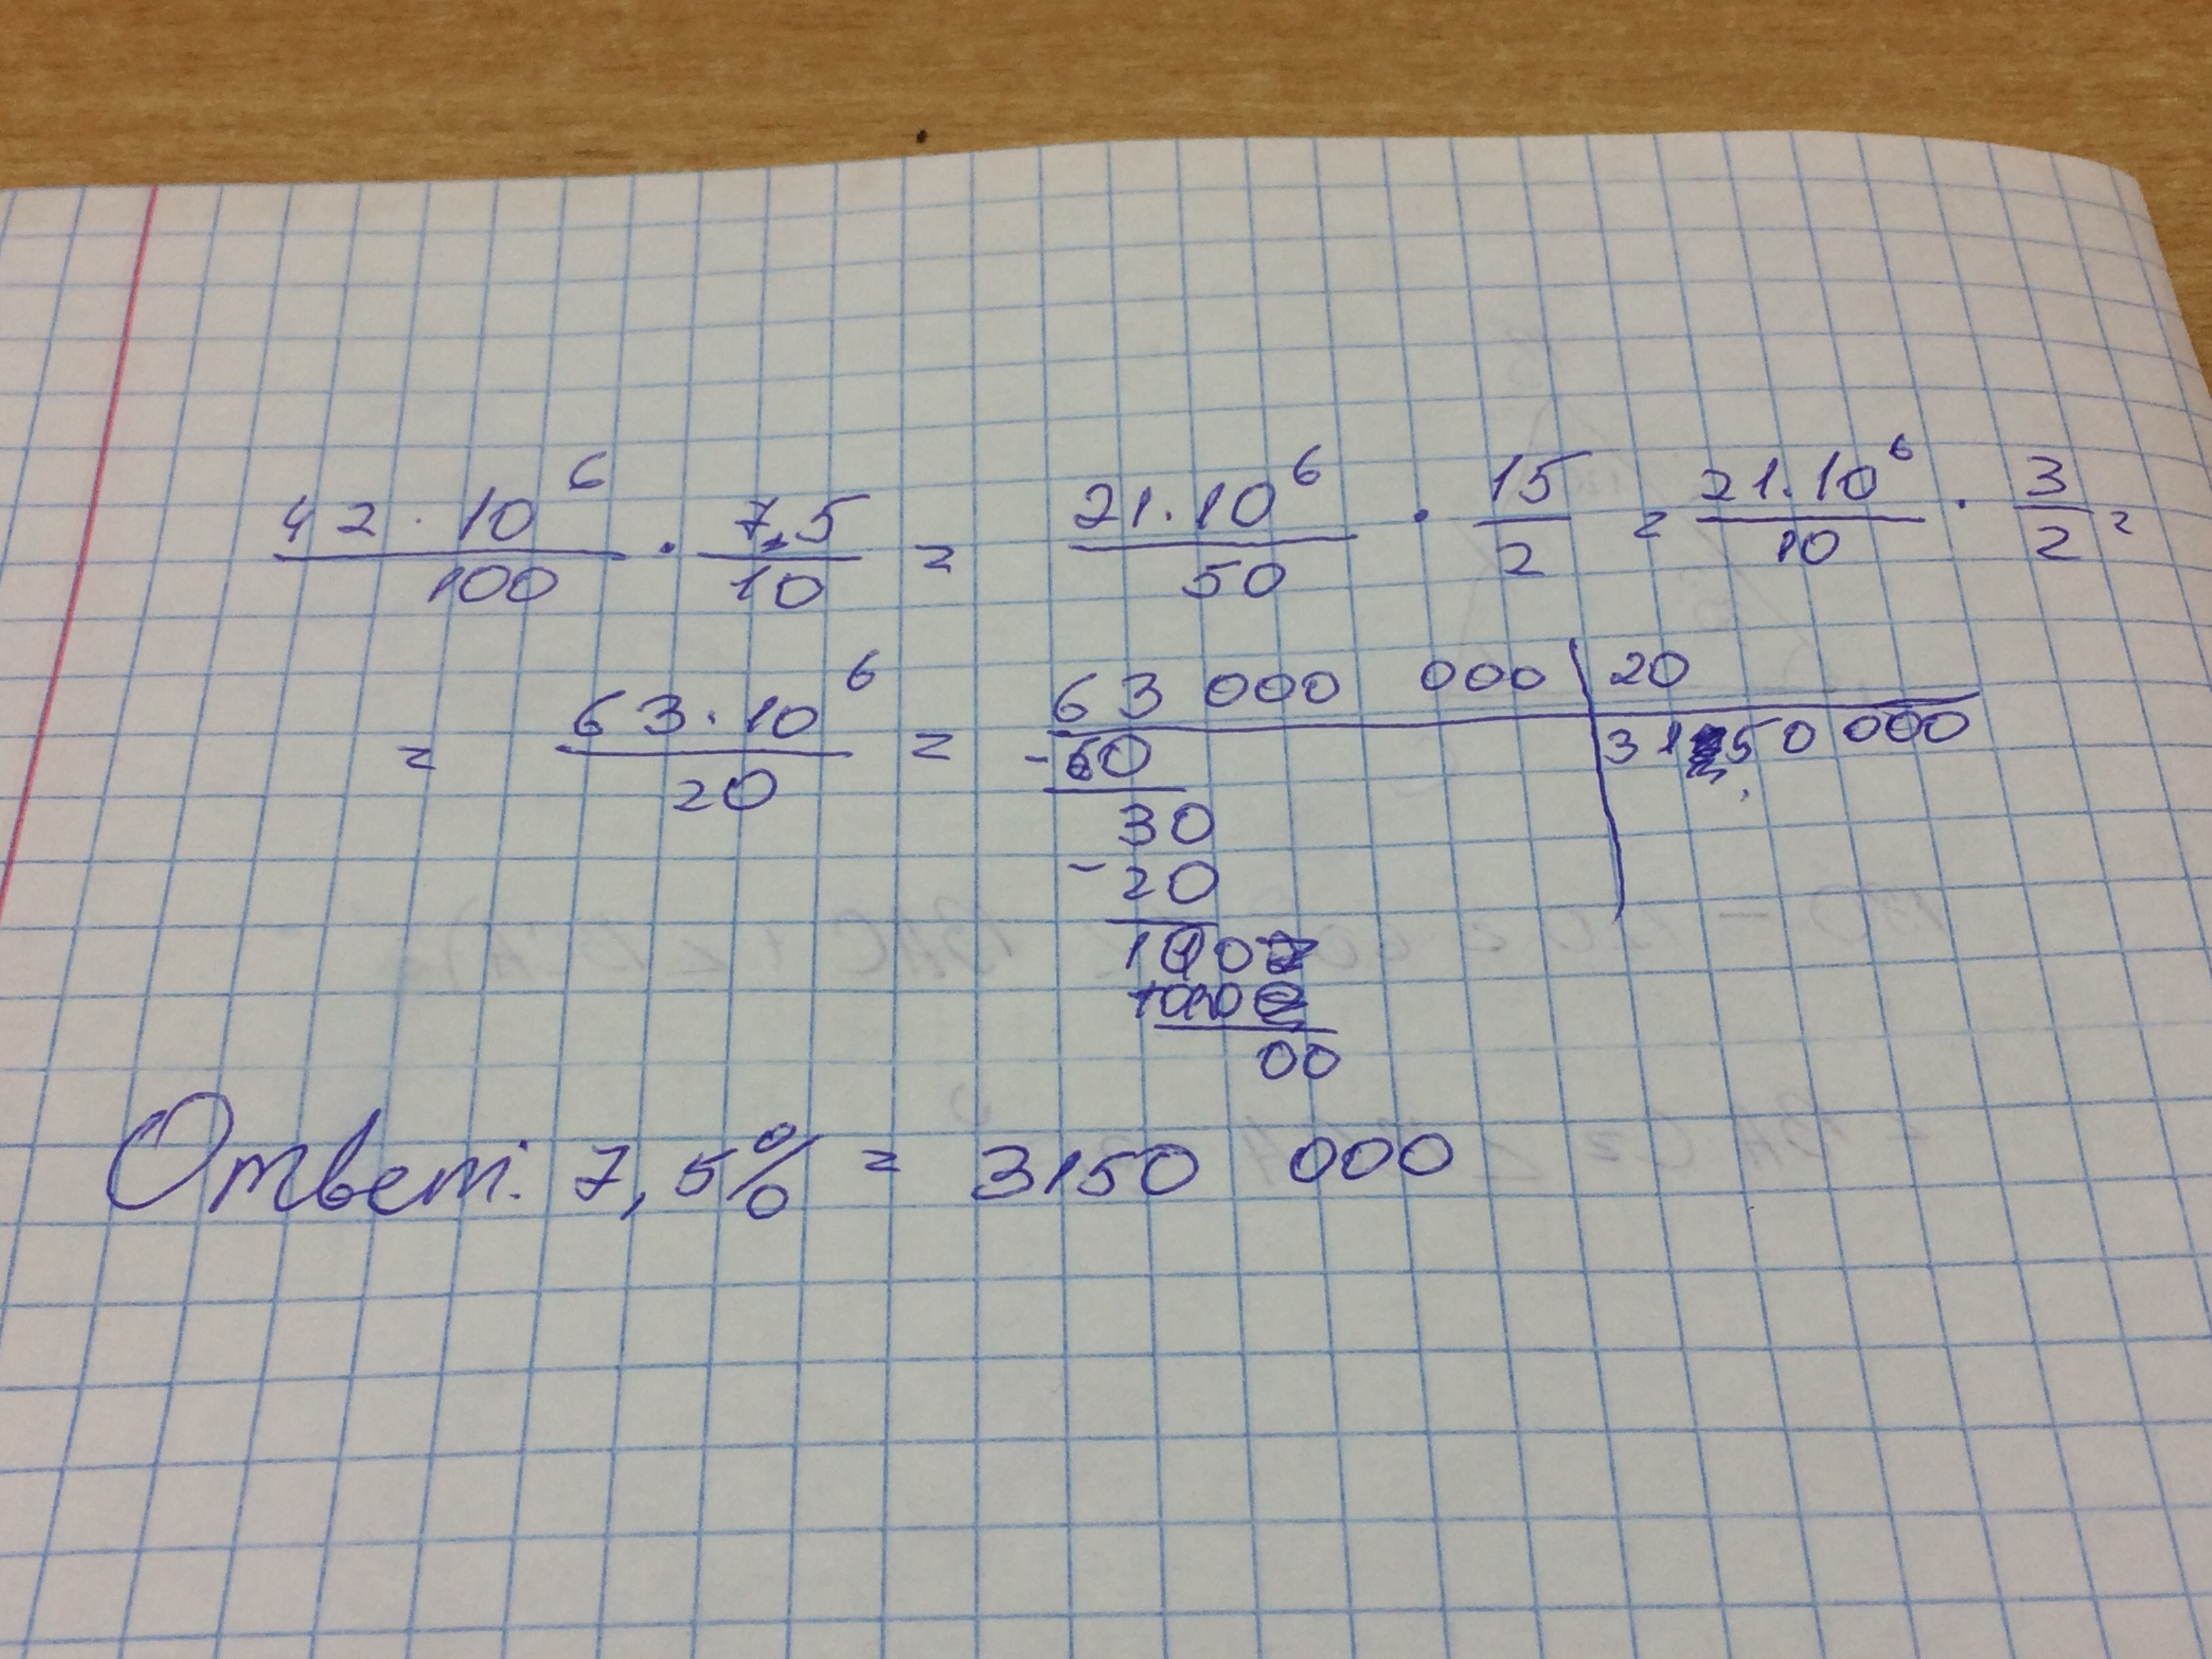 42 · 10^6 / 100 · 7,5 / 10 = 21 · 10^6 / 50 · 15 / 2 = 21 · 10^6 / 10 · 3 / 2 =
= 63 · 10^6 / 20 = 63 000 000 | 20
-60 3150 000
30
- 20
100
00
Ответ: 7,5% = 3150 000